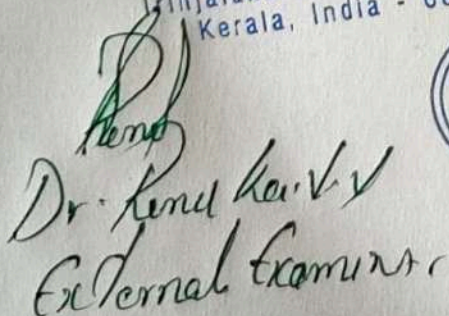 Kerala, India -
Renu
Dr. Renu Ka. V. V
External Examiner